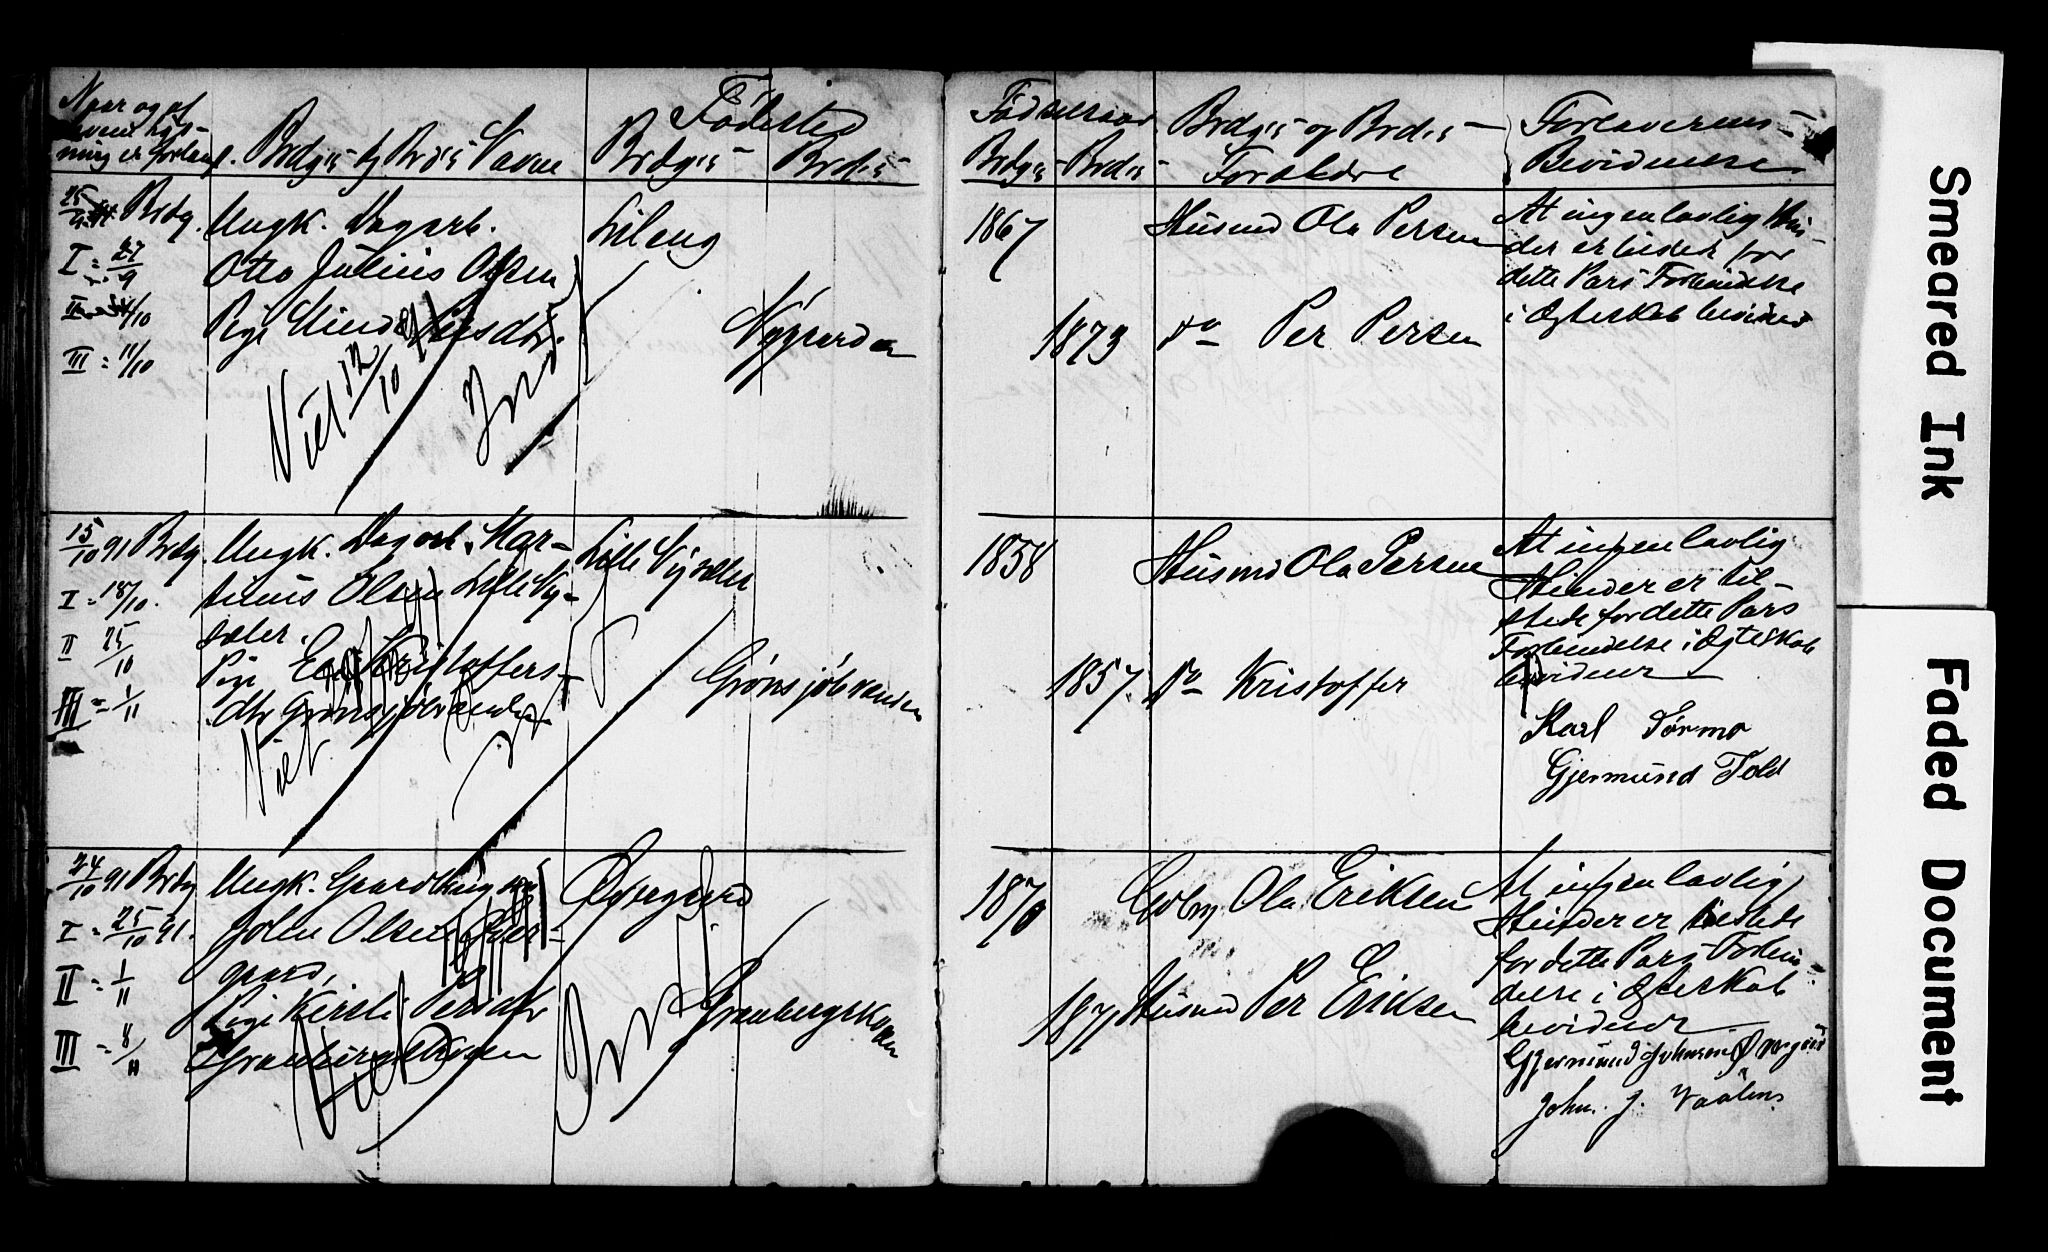 Naar og af
hvem Lys-
ning er forlangt.
Brdg's og Brd's Navne
Fødested
Brdg's
Brd's
Fødselsaar
Brdg's
Brd's
Brdg's og Brd's
Forældre
Forloverens
Bevidnelse
25/9 91 Brdg.
I = 27/9
II = 4/10
III = 11/10
Ungk. Dagarb.
Otto Julius Olsen
Pige Persdtr.
Viet 12/10 91
Indf
Lileng
Nygaarden
1867
1873
Husmd Ola Persen
do Per Persen
At ingen lovlig Hin-
der er tilstede for
dette Pars Forbindelse
i Ægteskab bevidnes
15/10 91 Brdg.
I = 18/10.
II 25/10
III = 1/11
Ungk. Dagarb. Mar-
tinus Olsen Lille Ny-
sæter.
Pige Kristoffers-
dtr Grønsjøbrænden
Viet
Lille Nysæter
Grønsjøbrænden
1858
1857.
Husmd Ola Persen
do Kristoffer
At ingen lovlig
Hinder er til-
stede for dette Pars
Forbindelse i Ægteskab
bevidner
Karl Tørmo
Gjermund Told
24/10 91 Brdg
I = 25/10 91.
II = 1/11
III = 8/11
Ungk. Gaardbrug
John Olsen
gaard,
Pige Kirsti Persdtr
Granbergskoven
Viet
Øvregaard
Granbergskoven
1870
1871
Gdbr Ola Eriksen
Husmd Per Eriksen
At ingen lovlig
Hinder er tilstede
for dette Pars Forbin-
delse i Ægteskab
bevidner
Gjermund Johnsen
John. J. Vaalen
Smeared Ink
Faded Document